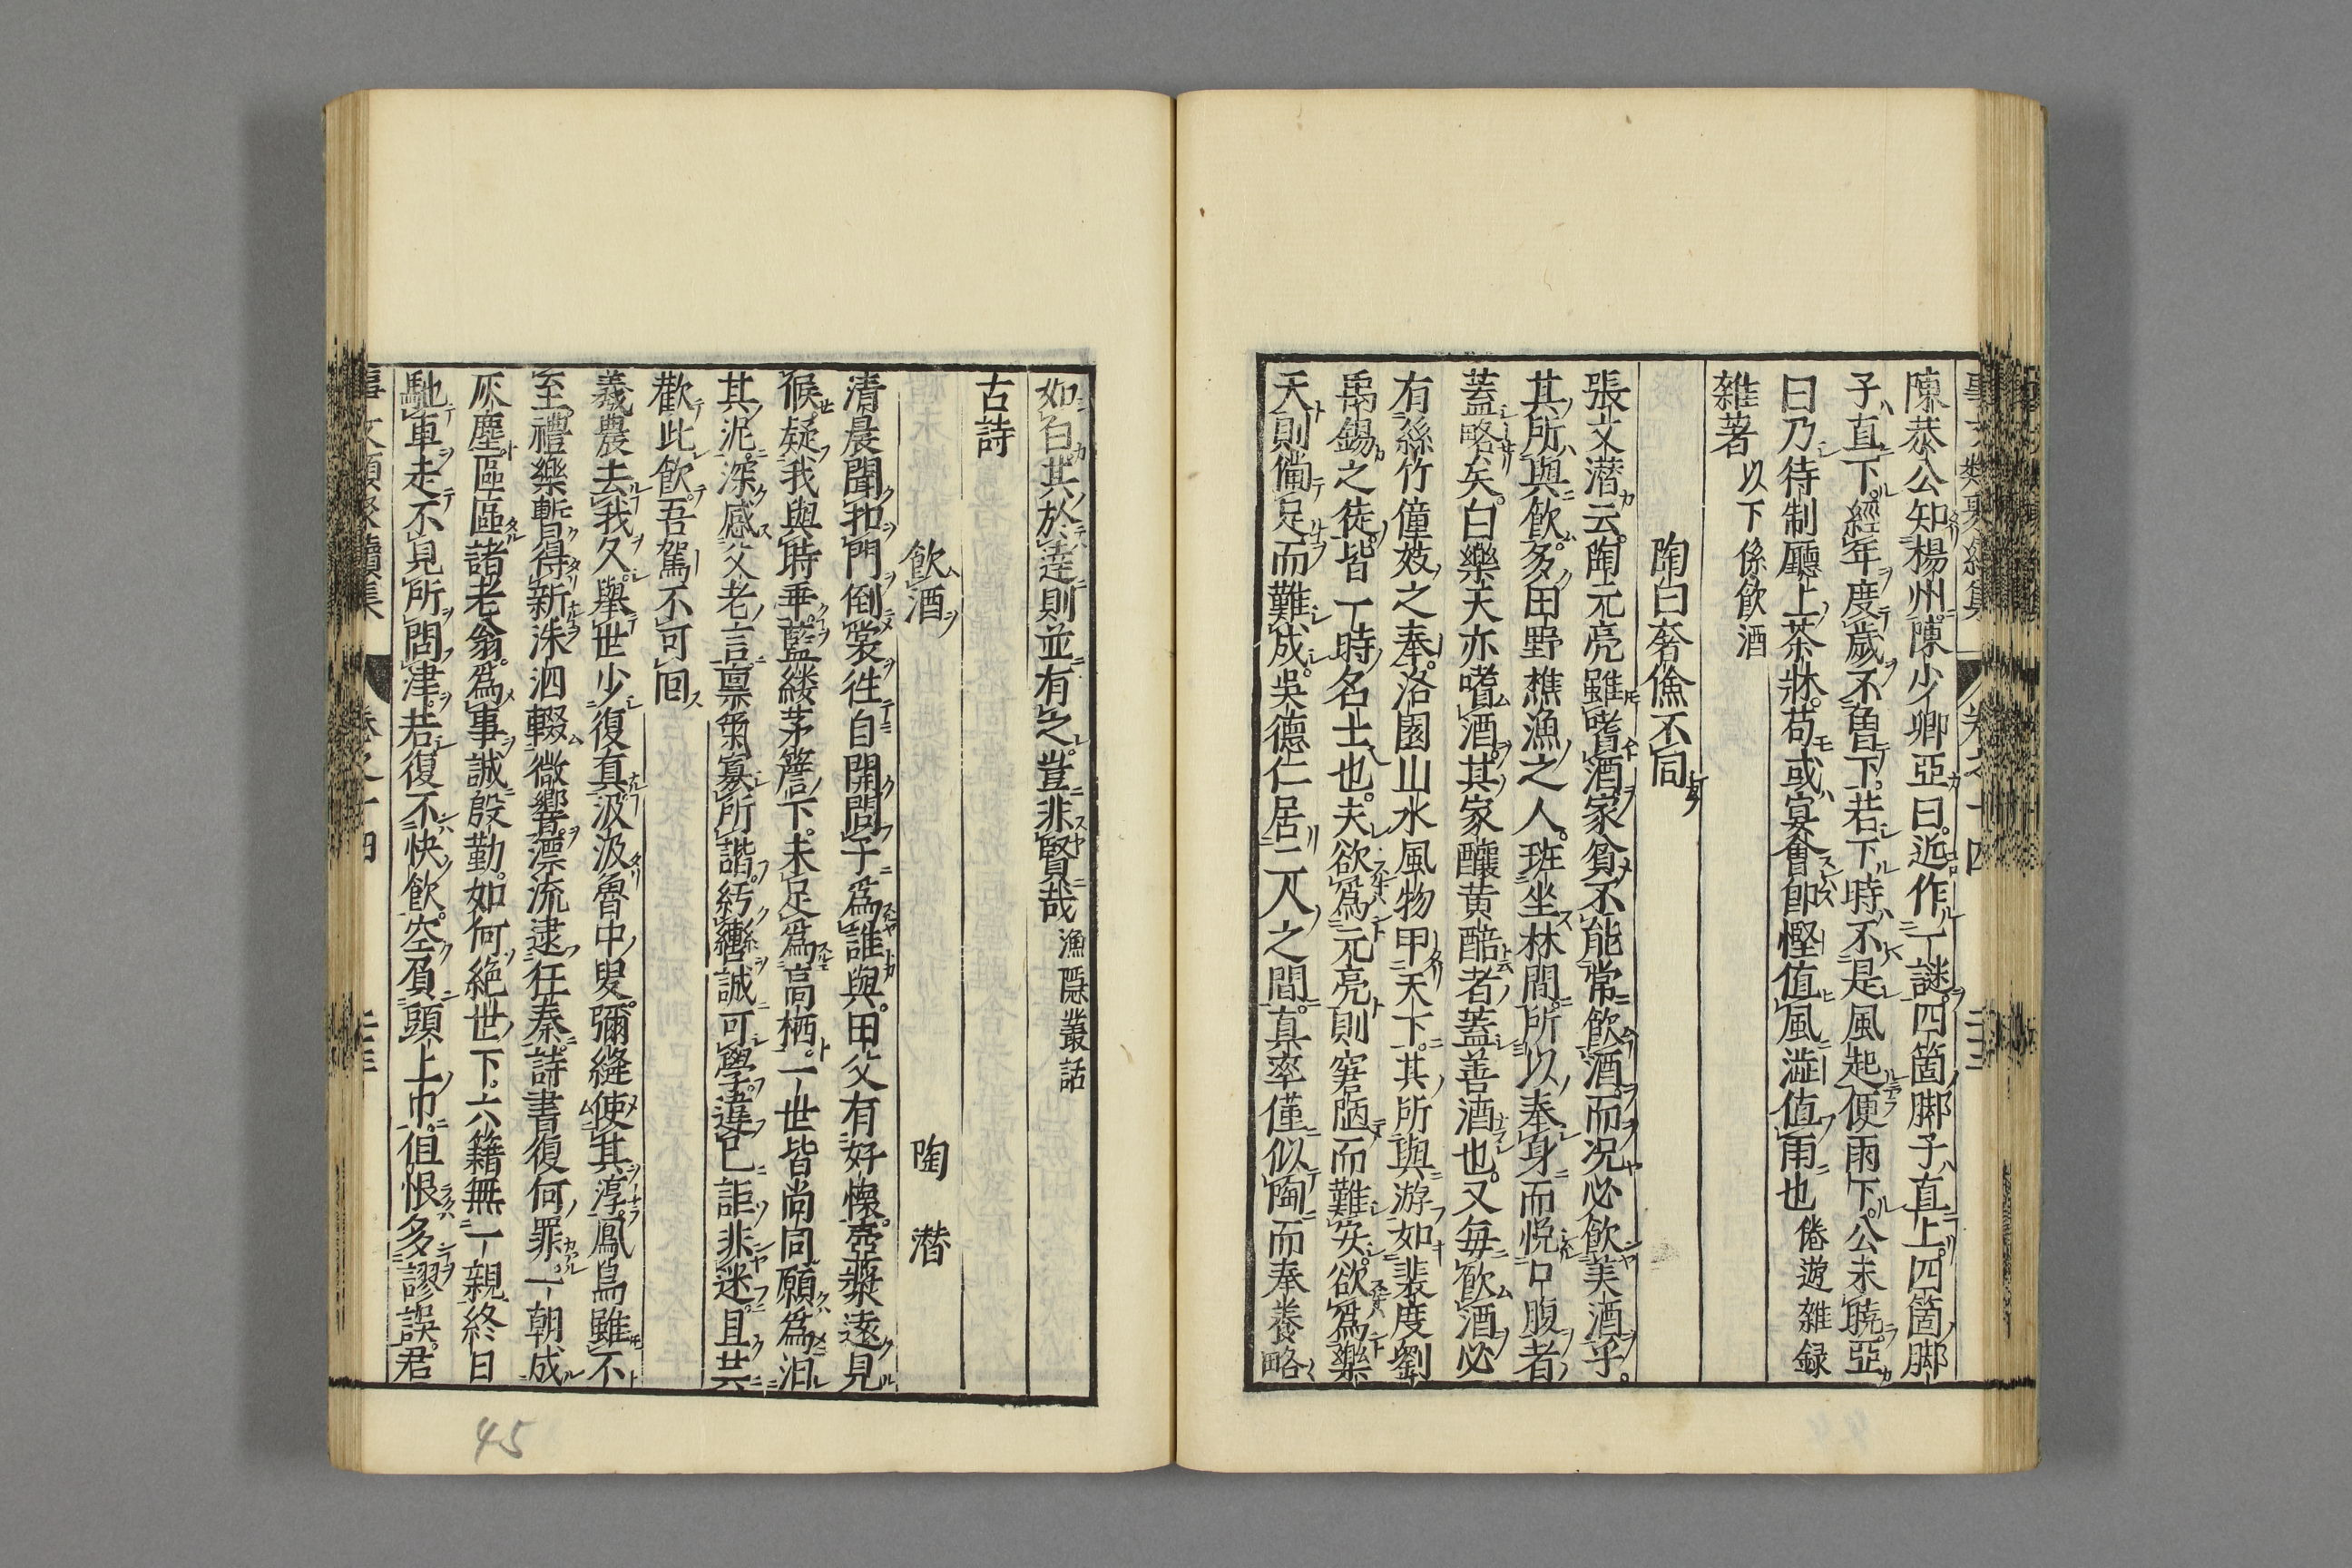 陳恭公知楊州陳少卿亞曰近作一謎四箇脚子直上四箇脚
子直下經年度歲不曾下若下時不是風起便雨下公未曉亞
曰乃待制廳上茶牀苟或宴會卽慳值風澁值雨也 倦遊雜録
雜著 以下係飲酒
陶白奢儉不同
張文潛云陶元亮雖嗜酒家貧不能常飲酒而况必飲美酒乎
其所與飲多田野樵漁之人班坐林間所以奉身而悦口腹者
蓋略矣白樂天亦嗜酒其家釀黄醅者蓋善酒也又毎飲酒必
有絲竹僮妓之奉洛園山水風物甲天下其所與游如裴度劉
禹錫之徒皆一時名士也夫欲爲元亮則窘陋而難安欲爲樂
天則備足而難成吳德仁居二人之間真率僅似陶而奉養略
如白其於達則並有之豈非賢哉 漁隱叢話
古詩
飲酒 陶潛
清晨聞扣門倒裳往自開問子爲誰與田父有好懷壺漿遠見
候疑我與時乖藍縷茅簷下未足爲高栖一世皆尚同願爲汩
其泥深感父老言禀氣寡所諧紆轡誠可學違已詎非迷且共
歡此飲吾駕不可囘
羲農去我久舉世少復真汲汲魯中叟彌縫使其淳鳳鳥雖不
至禮樂暫得新洙泗輟微響漂流逮狂秦詩書復何罪一朝成
灰塵區區諸老翁爲事誠殷勤如何絶世下六籍無一親終日
馳車走不見所問津若復不快飲空負頭上巾但恨多謬誤君
事文類聚續集 卷之十四
45